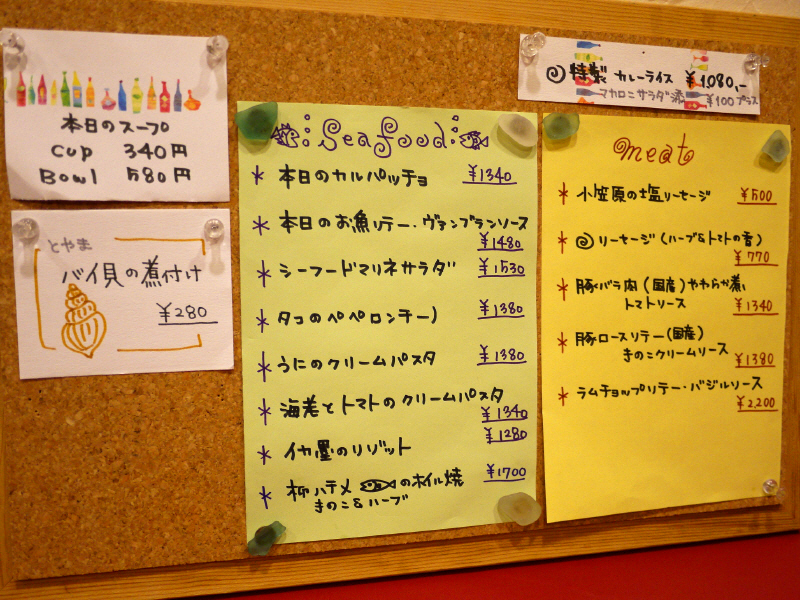 本日のスープ
cup 340円
Bowl 580円
とやま
バイ貝の煮付け
¥280
Seafood
* 本日のカルパッチョ ¥1340
* 本日のお魚ソテー・ヴァンブランソース
¥1480
* シーフードマリネサラダ ¥1530
* タコのペペロンチーノ ¥1380
* うにのクリームパスタ ¥1380
* 海老とトマトのクリームパスタ
¥1340
* イカ墨のリゾット ¥1280
* 柳ハチメのホイル焼 ¥1700
きのこ&ハーブ
特製 カレーライス ¥1,080,-
マカロニサラダ添 ¥100プラス
meat
* 小笠原の塩ソーセージ ¥500
* ソーセージ(ハーブ&トマトの香)
¥770
* 豚バラ肉(国産)やわらか煮
トマトソース ¥1340
* 豚ロースソテー(国産)
きのこクリームソース ¥1380
* ラムチョップソテー・バジルソース
¥2,200